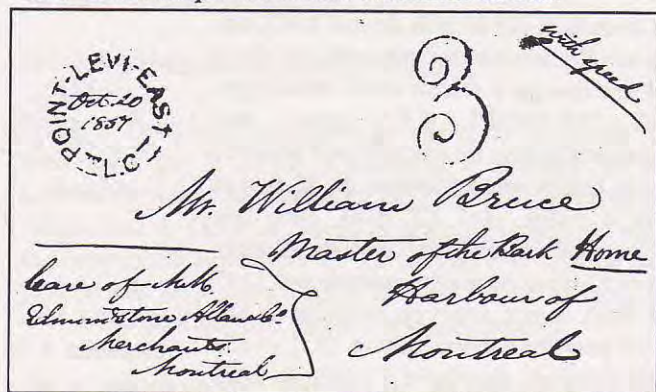 POINT-LEVI-EAST L.C.
Oct. 20
1857
3
with speed
Mr. William Bruce
Master of the Bark Home
Harbour of
Montreal
Care of MM.
Edmundstone Allan & Co.
Merchants.
Montreal